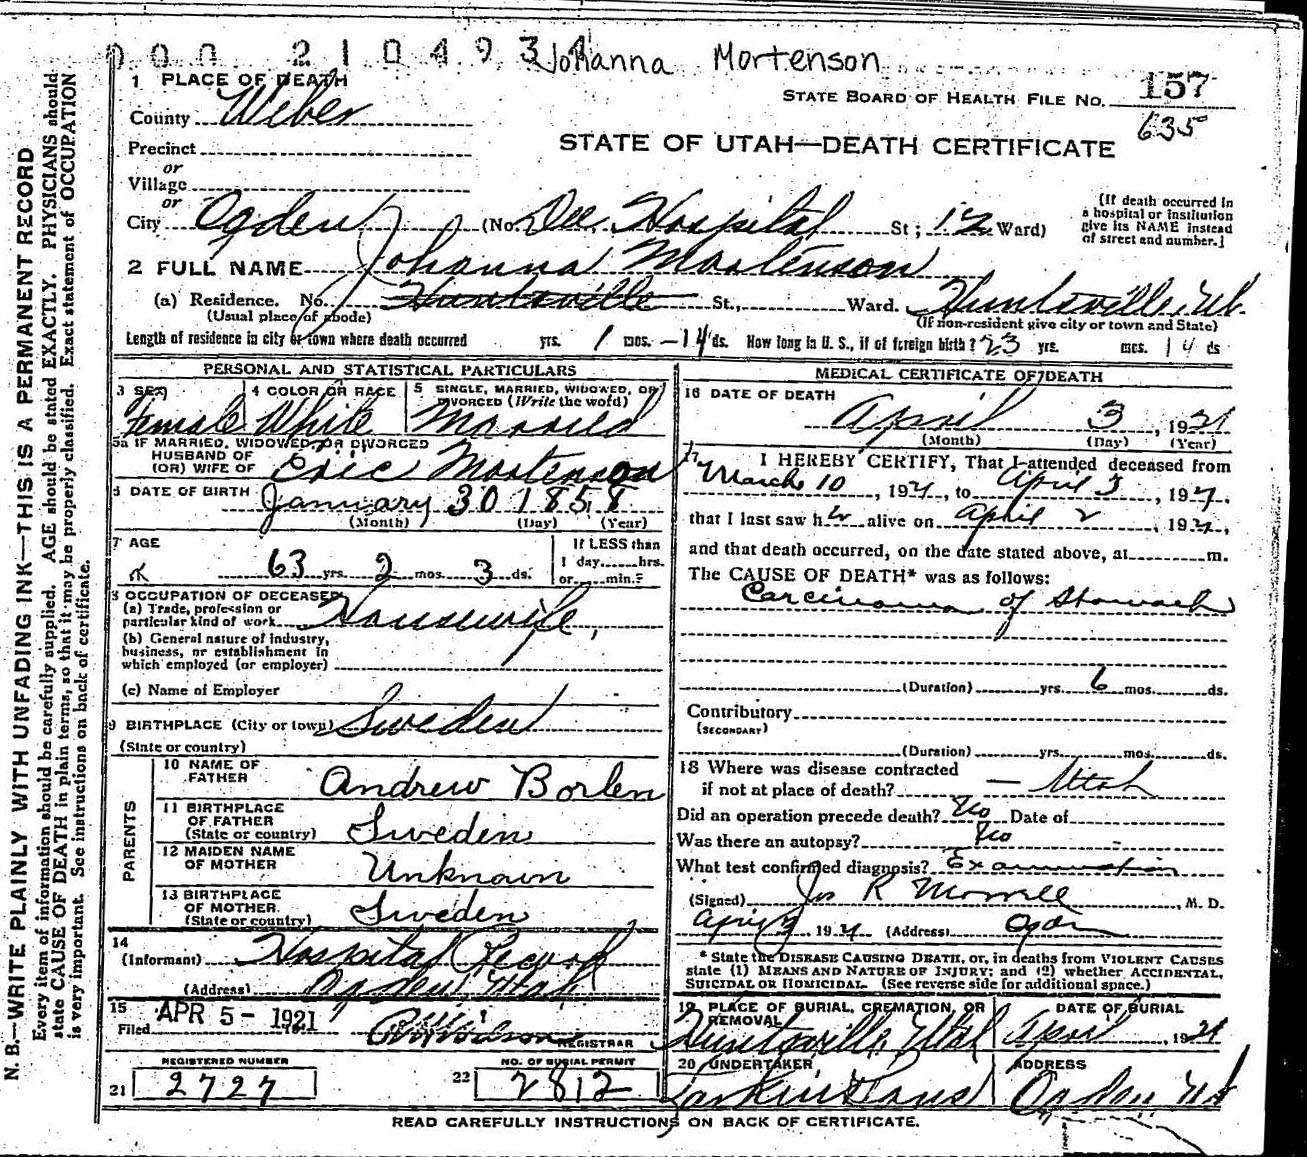 000 210493 Johanna Mortenson
1 PLACE OF DEATH
STATE BOARD OF HEALTH FILE NO. 157
635
County Weber
STATE OF UTAH—DEATH CERTIFICATE
Precinct
or
Village
or
City Ogden (No. Dee Hospital St; 12 Ward)
(If death occurred in
a hospital or institution
give its NAME instead
of street and number.)
2 FULL NAME Johanna Mortenson
(a) Residence. No. Huntsville St., Ward. Huntsville, Ut.
(Usual place of abode) (If non-resident give city or town and State)
Length of residence in city or town where death occurred yrs. 1 mos. —14 ds. How long in U. S., if of foreign birth? 23 yrs. mos. 14 ds
PERSONAL AND STATISTICAL PARTICULARS
3 SEX
Female
4 COLOR OR RACE
White
5 SINGLE, MARRIED, WIDOWED, OR
DIVORCED (Write the word)
Married
5a IF MARRIED, WIDOWED, OR DIVORCED
HUSBAND OF
(OR) WIFE OF Eric Mortenson
6 DATE OF BIRTH January 30 1858
(Month) (Day) (Year)
7 AGE
63 yrs. 2 mos. 3 ds.
If LESS than
1 day hrs.
or min.?
8 OCCUPATION OF DECEASED
(a) Trade, profession or
particular kind of work Housewife,
(b) General nature of industry,
business, or establishment in
which employed (or employer)
(c) Name of Employer
9 BIRTHPLACE (City or town) Sweden
(State or country)
PARENTS
10 NAME OF
FATHER Andrew Borlen
11 BIRTHPLACE
OF FATHER
(State or country) Sweden
12 MAIDEN NAME
OF MOTHER Unknown
13 BIRTHPLACE
OF MOTHER
(State or country) Sweden
14
(Informant) Hospital Record
(Address) Ogden Utah
15
Filed APR 5 - 1921
REGISTRAR
REGISTERED NUMBER
21 2727
NO. OF BURIAL PERMIT
22 2812
MEDICAL CERTIFICATE OF DEATH
16 DATE OF DEATH
April 3, 1921
(Month) (Day) (Year)
17 I HEREBY CERTIFY, That I attended deceased from
March 10, 1921, to April 3, 1921.
that I last saw her alive on April 2, 1921,
and that death occurred, on the date stated above, at m.
The CAUSE OF DEATH* was as follows:
Carcinoma of Stomach
(Duration) yrs. 6 mos. ds.
Contributory
(SECONDARY)
(Duration) yrs. mos. ds.
18 Where was disease contracted
if not at place of death? — Utah
Did an operation precede death? No Date of
Was there an autopsy? No
What test confirmed diagnosis? Examination
(Signed) Jos R Morrell, M. D.
April 3 1921 (Address) Ogden
* State the DISEASE CAUSING DEATH, or, in deaths from VIOLENT CAUSES
state (1) MEANS AND NATURE OF INJURY; and (2) whether ACCIDENTAL,
SUICIDAL OR HOMICIDAL. (See reverse side for additional space.)
19 PLACE OF BURIAL, CREMATION, OR
REMOVAL
Huntsville Utah
DATE OF BURIAL
April, 1921
20 UNDERTAKER
Larkin & Sons
ADDRESS
Ogden, Ut
READ CAREFULLY INSTRUCTIONS ON BACK OF CERTIFICATE.
N. B.—WRITE PLAINLY WITH UNFADING INK—THIS IS A PERMANENT RECORD
Every item of information should be carefully supplied. AGE should be stated EXACTLY. PHYSICIANS should
state CAUSE OF DEATH in plain terms, so that it may be properly classified. Exact statement of OCCUPATION
is very important. See instructions on back of certificate.